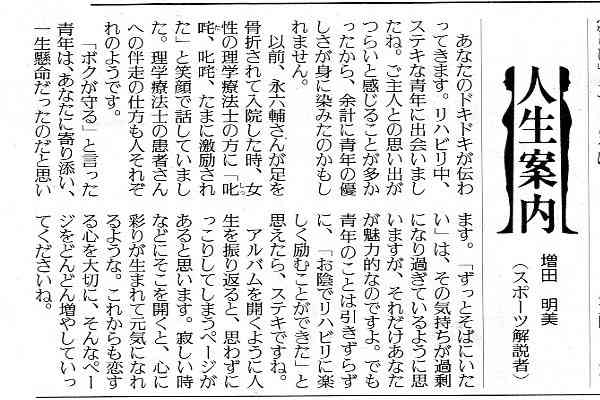 人生案内
増田 明美
（スポーツ解説者）
あなたのドキドキが伝わ
ってきます。リハビリ中、
ステキな青年に出会いまし
たね。ご主人との思い出が
つらいと感じることが多か
ったから、余計に青年の優
しさが身に染みたのかもし
れません。
以前、永六輔さんが足を
骨折されて入院した時、女
性の理学療法士の方に「叱
咤、叱咤、たまに激励され
た」と笑顔で話していまし
た。理学療法士の患者さん
への伴走の仕方も人それぞ
れのようです。
「ボクが守る」と言った
青年は、あなたに寄り添い、
一生懸命だったのだと思い
ます。「ずっとそばにいた
い」は、その気持ちが過剰
になり過ぎているように思
いますが、それだけあなた
が魅力的なのですよ。でも
青年のことは引きずらず
に、「お陰でリハビリに楽
しく励むことができた」と
思えたら、ステキですね。
アルバムを開くように人
生を振り返ると、思わずに
っこりしてしまうページが
あると思います。寂しい時
などにそこを開くと、心に
彩りが生まれて元気になれ
るような。これからも恋す
る心を大切に、そんなペー
ジをどんどん増やしていっ
てくださいね。